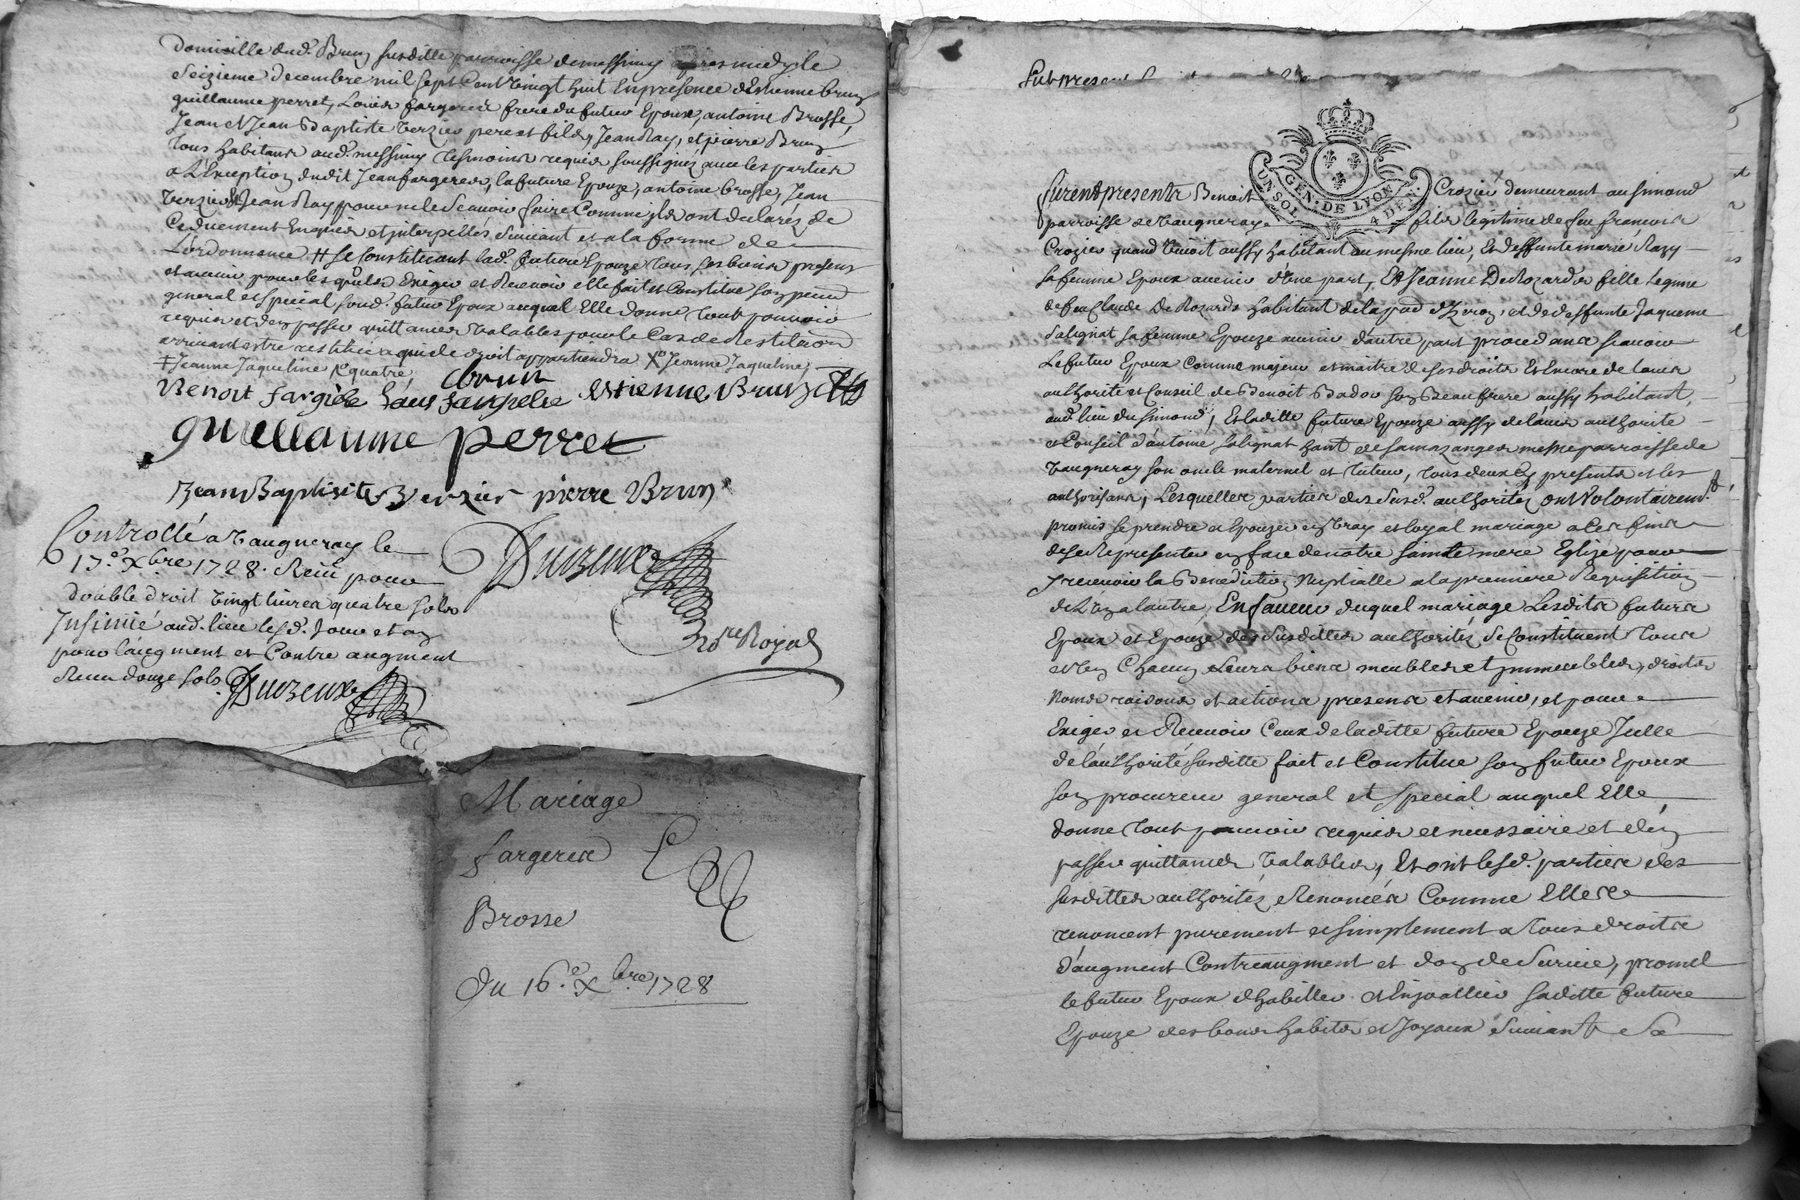 domicille dud. Brun susditte parroisse de messimy apres midy le
seizieme decembre mil sept cent vingt huit en presence d'Estienne brun
guillaume perret, Louis fargere frere du futur Epoux, antoine Brosse,
Jean et Jean Baptiste verzier pere et fils, Jean Ray, et pierre Brun
tous habitans aud. messimy tesmoins requis soussignez avec les parties
a L'Exception dudit Jean fargeres, la future Epouze, antoine brosse, Jean
verzier et Jean Ray pour ne le scavoir faire Comme ils ont declarez de
Ce duement Enquis et interpellés suivant et a la forme de
L'ordonnance # se Constituant lad. future Epouze tous ses biens presens
et avenir pour lesquels Exiger et Recevoir elle fait et Constitue son
general et special sond. futur Epoux auquel Elle donne tout pouvoir
requis et d'en passer quittances valables pour le Cas de Restitution
arrivant estre restitué a qui de droit appartiendra Jeanne Jaqueline
Jeanne Jaqueline quatre
Benoit fargére Louis fargere cbrun estienne Brun
guillaume perret
Jean Baptiste Verzier pierre Brun
Controllé a vaugneray le
17.e Xbre 1728. Receu pour
double droit vingt livres quatre sols
Insinué aud. lieu lesd. Jour et an
pour l'augment et Contre augment
Receu douze sols. Duvzeux
Duvzeux
no.re Royal
Mariage
fargeres
Brosse
Du 16.e Xbre 1728
furent presents
GEN. DE LYON
UN SOL 4 DEN.
furent presents Benoit Crozier demeurant au simond
parroisse de vaugneray fils legitime de feu françois
Crozier quand vivoit aussy habitant au mesme lieu, Et deffunte marie Razy
sa femme Epoux avenir d'une part, Et Jeanne DeRozard fille legitime
de feu Claude DeRozard habitant de la parr. d'Yzeron, et de deffunte Jaqueme
salignat sa femme Epouze avenir d'autre part procedans scavoir
Le futur Epoux Comme majeur et maitre de ses droits Et Encore de lavis
authorité et Conseil de Benoit Badou son Beau frere aussy habitant
aud. lieu du simond, Et laditte future Epouze aussy de lavis authorité
et Conseil d'antoine salignat hant de samazanges mesme parroisse de
vaugneray son oncle maternel et tuteur, tous deux presents et les
authorisans, Lesquelles parties des susd. authoritez ont volontairemt
promis se prendre et Epouzer en vray et loyal mariage a Ces fins
de se Representer en face de notre sainte mere Eglize pour
y recevoir la Benediction Nuptialle a la premiere Requisition
de L'un a lautre, En faveur duquel mariage Lesdits futurs
Epoux et Epouze des susdittes authoritez se Constituent tous
et un Chacun Leurs biens meubles et jmmeubles, droits
Noms raisons et actions presens et avenir, et pour
Exiger et Recevoir Ceux de laditte future Epouze Icelle
de l'authorité susditte fait et Constitue son futur Epoux
son procureur general et special auquel Elle
donne tout pouvoir requis et necessaire et d'en
passer quittances valables, Et ont lesd. parties des
susdittes authoritez Renoncés Comme Elles
renoncent purement et simplement a tous droits
d'augment Contreaugment et don de survie, promet
le futur Epoux d'habiller et Enjoaller saditte future
Epouze des bons habits et Joyaux suivant sa